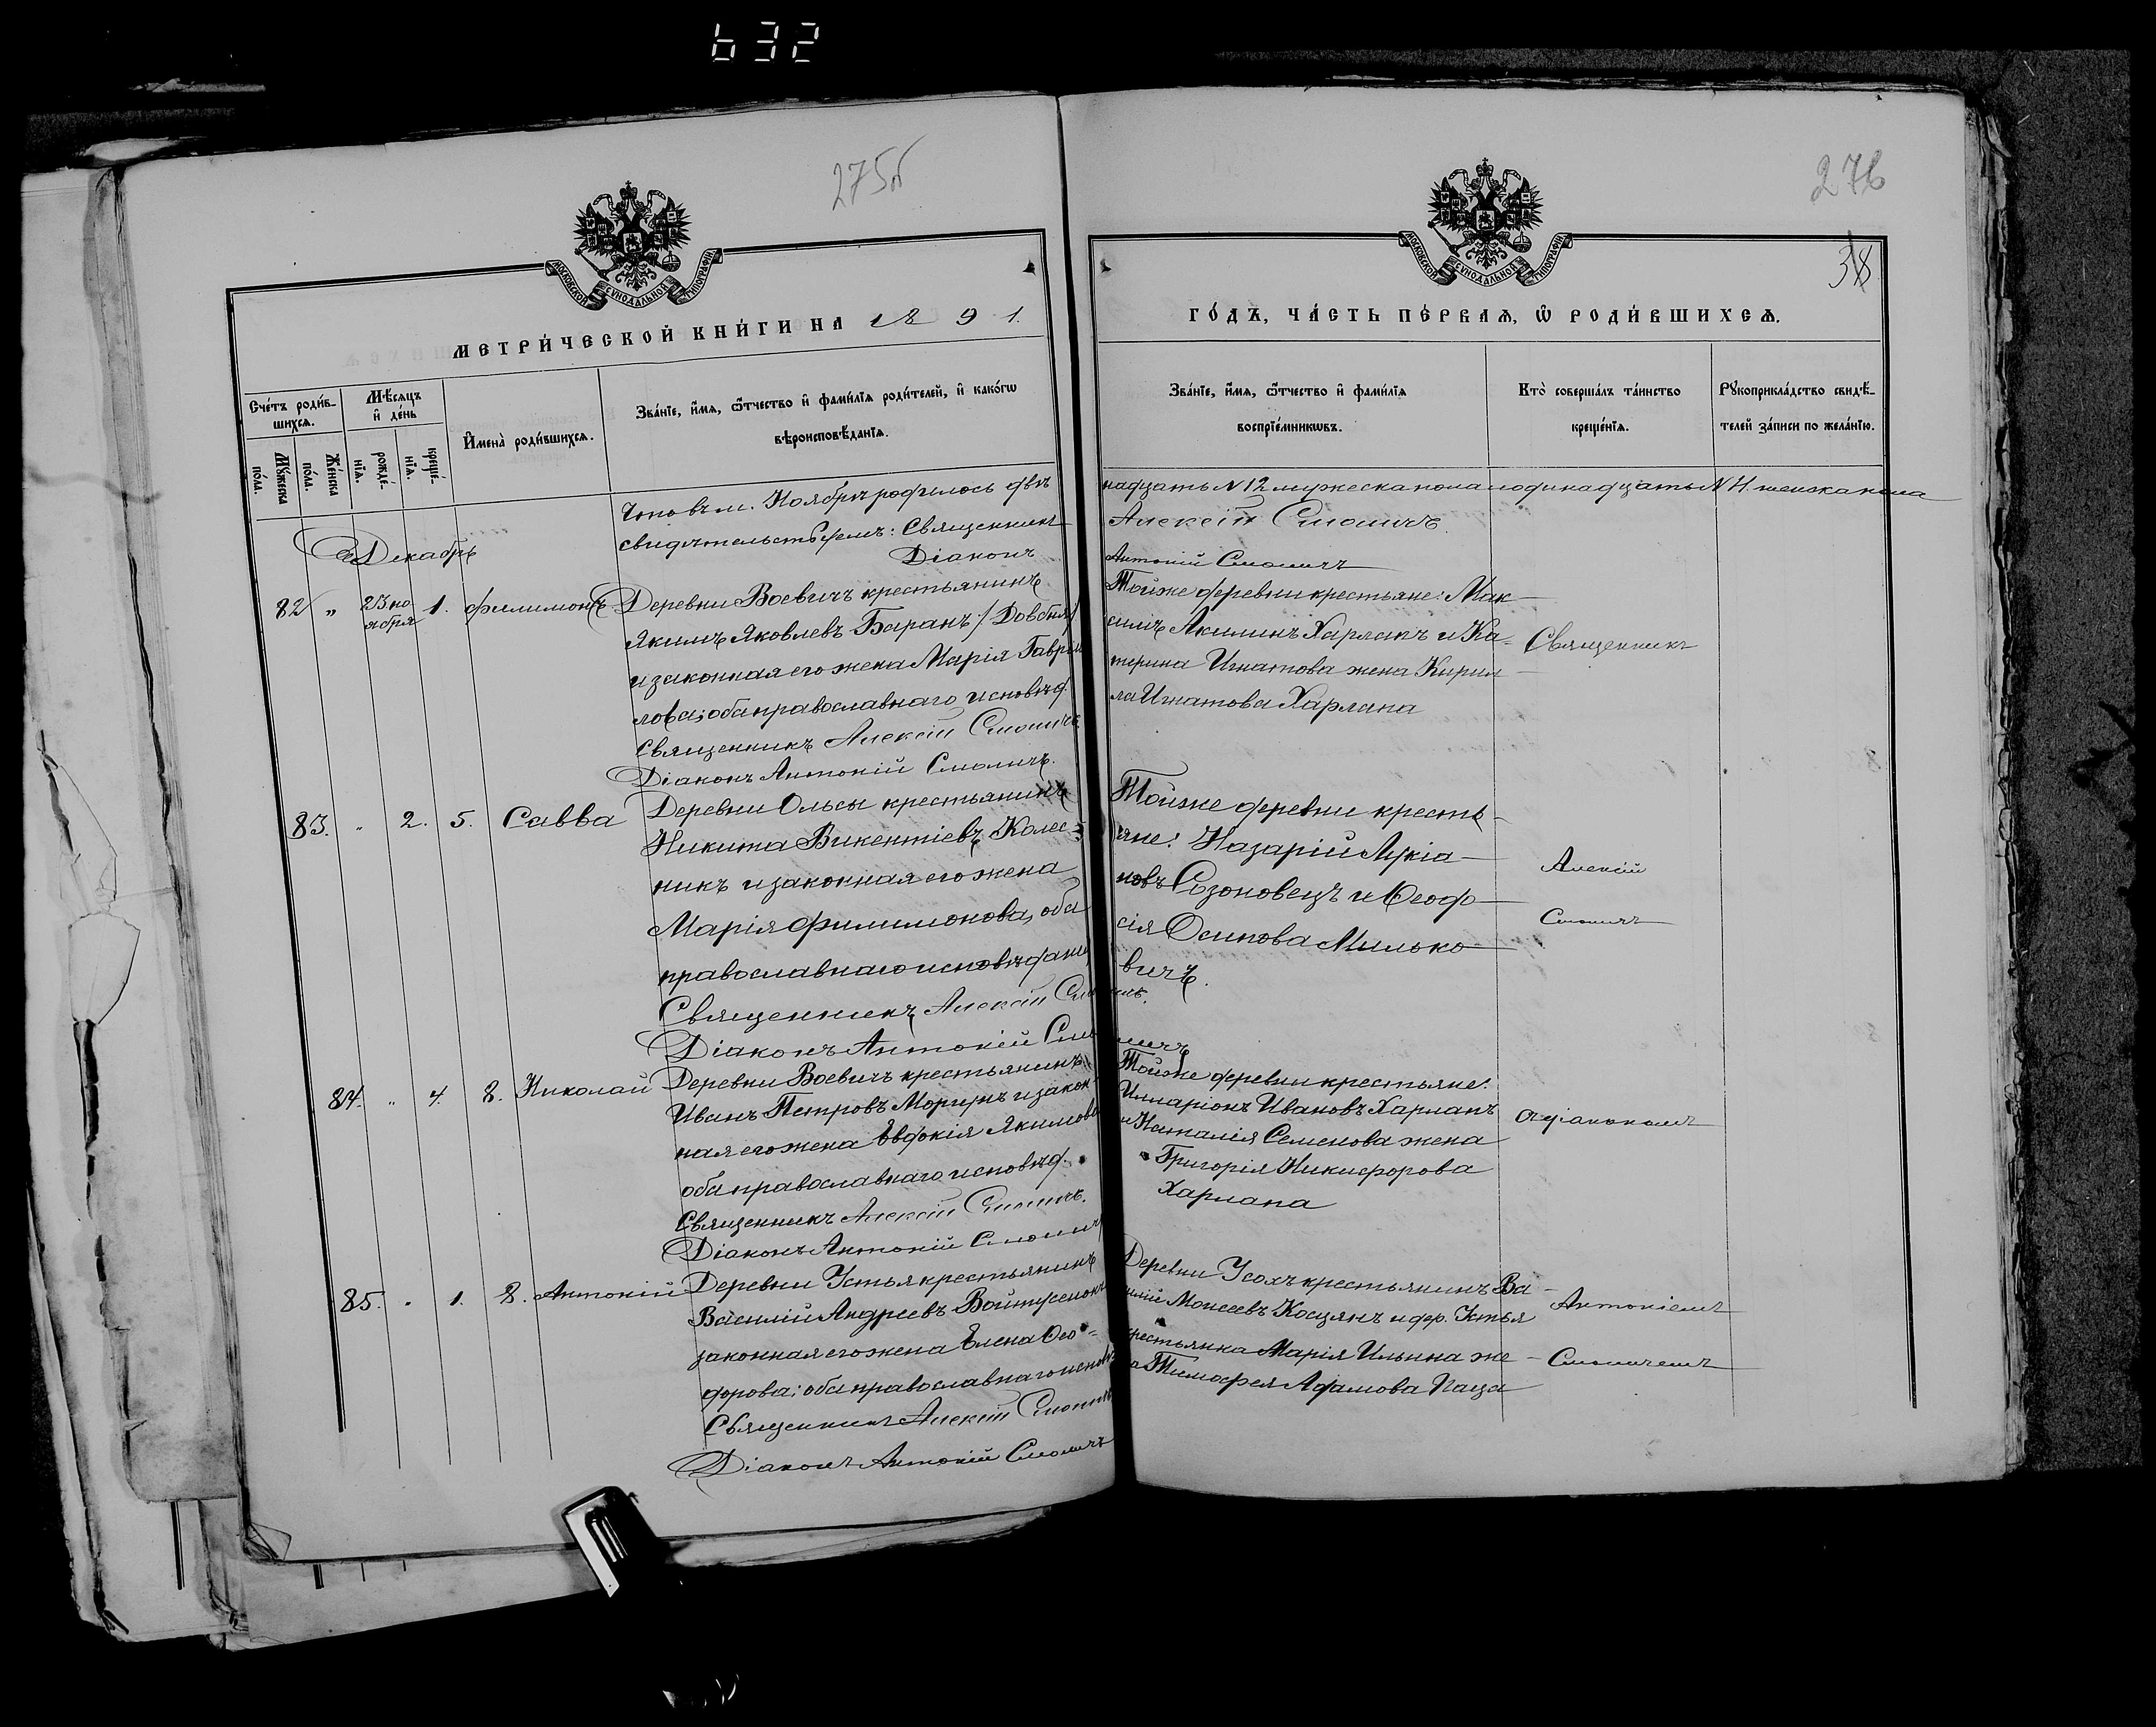 632
275б
276
38
МОСКОВСКОЙ СѴНОДАЛЬНОЙ ТИПОГРАФІИ
МОСКОВСКОЙ СѴНОДАЛЬНОЙ ТИПОГРАФІИ
МЕТРИ́ЧЕСКОЙ КНИ́ГИ НА 1891.
ГО́ДЪ, ЧА́СТЬ ПЕ́РВАѦ, Ѿ РОДИ́ВШИХСѦ.
Сче́тъ роди́в-
шихсѧ.
Мꙋ́жеска
по́ла.
Же́нска
по́ла.
Мѣ́сѧцъ
и҆ де́нь
рожде́-
нїѧ.
креще́-
нїѧ.
И҆мена̀ роди́вшихсѧ.
Зва́нїе, и҆́мѧ, ѻ҆́тчество и҆ фами́лїѧ роди́телей, и҆ како́гѡ
вѣроисповѣ́данїѧ.
Зва́нїе, и҆́мѧ, ѻ҆́тчество и҆ фами́лїѧ
воспрїе́мникѡвъ.
Кто̀ соверша́лъ та́инство
креще́нїѧ.
Рꙋкоприкла́дство свидѣ́-
телей за́писи по жела́нїю.
Что въ м. Ноябрѣ родилось двѣ
надцать N 12 мужеска пола и одинадцать N 11 женска пола
свидѣтельствуемъ: Священникъ
Алексій Смоличъ
Діаконъ
Антоній Смоличъ
Декабрь
82 " 23 но
ября 1. Филимонъ
Деревни Воевичъ крестьянинъ
Якимъ Яковлевъ Баранъ /Довбня/
и законная его жена Марія Гаврїи
лова; оба православнаго исповѣд.
Священникъ Алексій Смоличъ
Діаконъ Антоній Смоличъ.
Тойже деревни крестьяне: Мак-
симъ Акилинъ Харланъ и Ка-
терина Игнатова жена Кирил-
ла Игнатова Харлана
Священникъ
83. " 2. 5. Савва
Деревни Ольсы крестьянинъ
Никита Викентіевъ Колес=
никъ и законная его жена
Марія Филимонова, оба
православнаго исповѣдані
Священникъ Алексій Смоличъ.
Діаконъ Антоній Смоличъ
Тойже деревни кресть-
яне: Назарій Лукіа-
новъ Созоновецъ и Феодо-
сія Осипова Милько-
вичъ.
Алексій
Смоличъ
84. " 4. 8. Николай
Деревни Воевичъ крестьянинъ
Иванъ Петровъ Моргунъ и закон
ная его жена Евдокія Якимова
оба православнаго исповѣд.
Священникъ Алексій Смоличъ.
Діаконъ Антоній Смоличъ
Тойже деревни крестьяне:
Илларіонъ Ивановъ Харланъ
и Наталія Семенова жена
Григорія Никифорова
Харлана
съ діакономъ
85. " 1. 8. Антоній
Деревни Устья крестьянинъ
Василій Андреевъ
законная его жена Елена Фео=
дорова; оба православнаго исповѣ
Священникъ Алексій Смоличъ
Діаконъ Антоній Смоличъ
Деревни Усохъ крестьянинъ Ва-
силій Моисеевъ Косцянъ и дер. Устья
крестьянка Марія Ильина же-
на Тимофея Адамова Паца
Антоніемъ
Смоличемъ